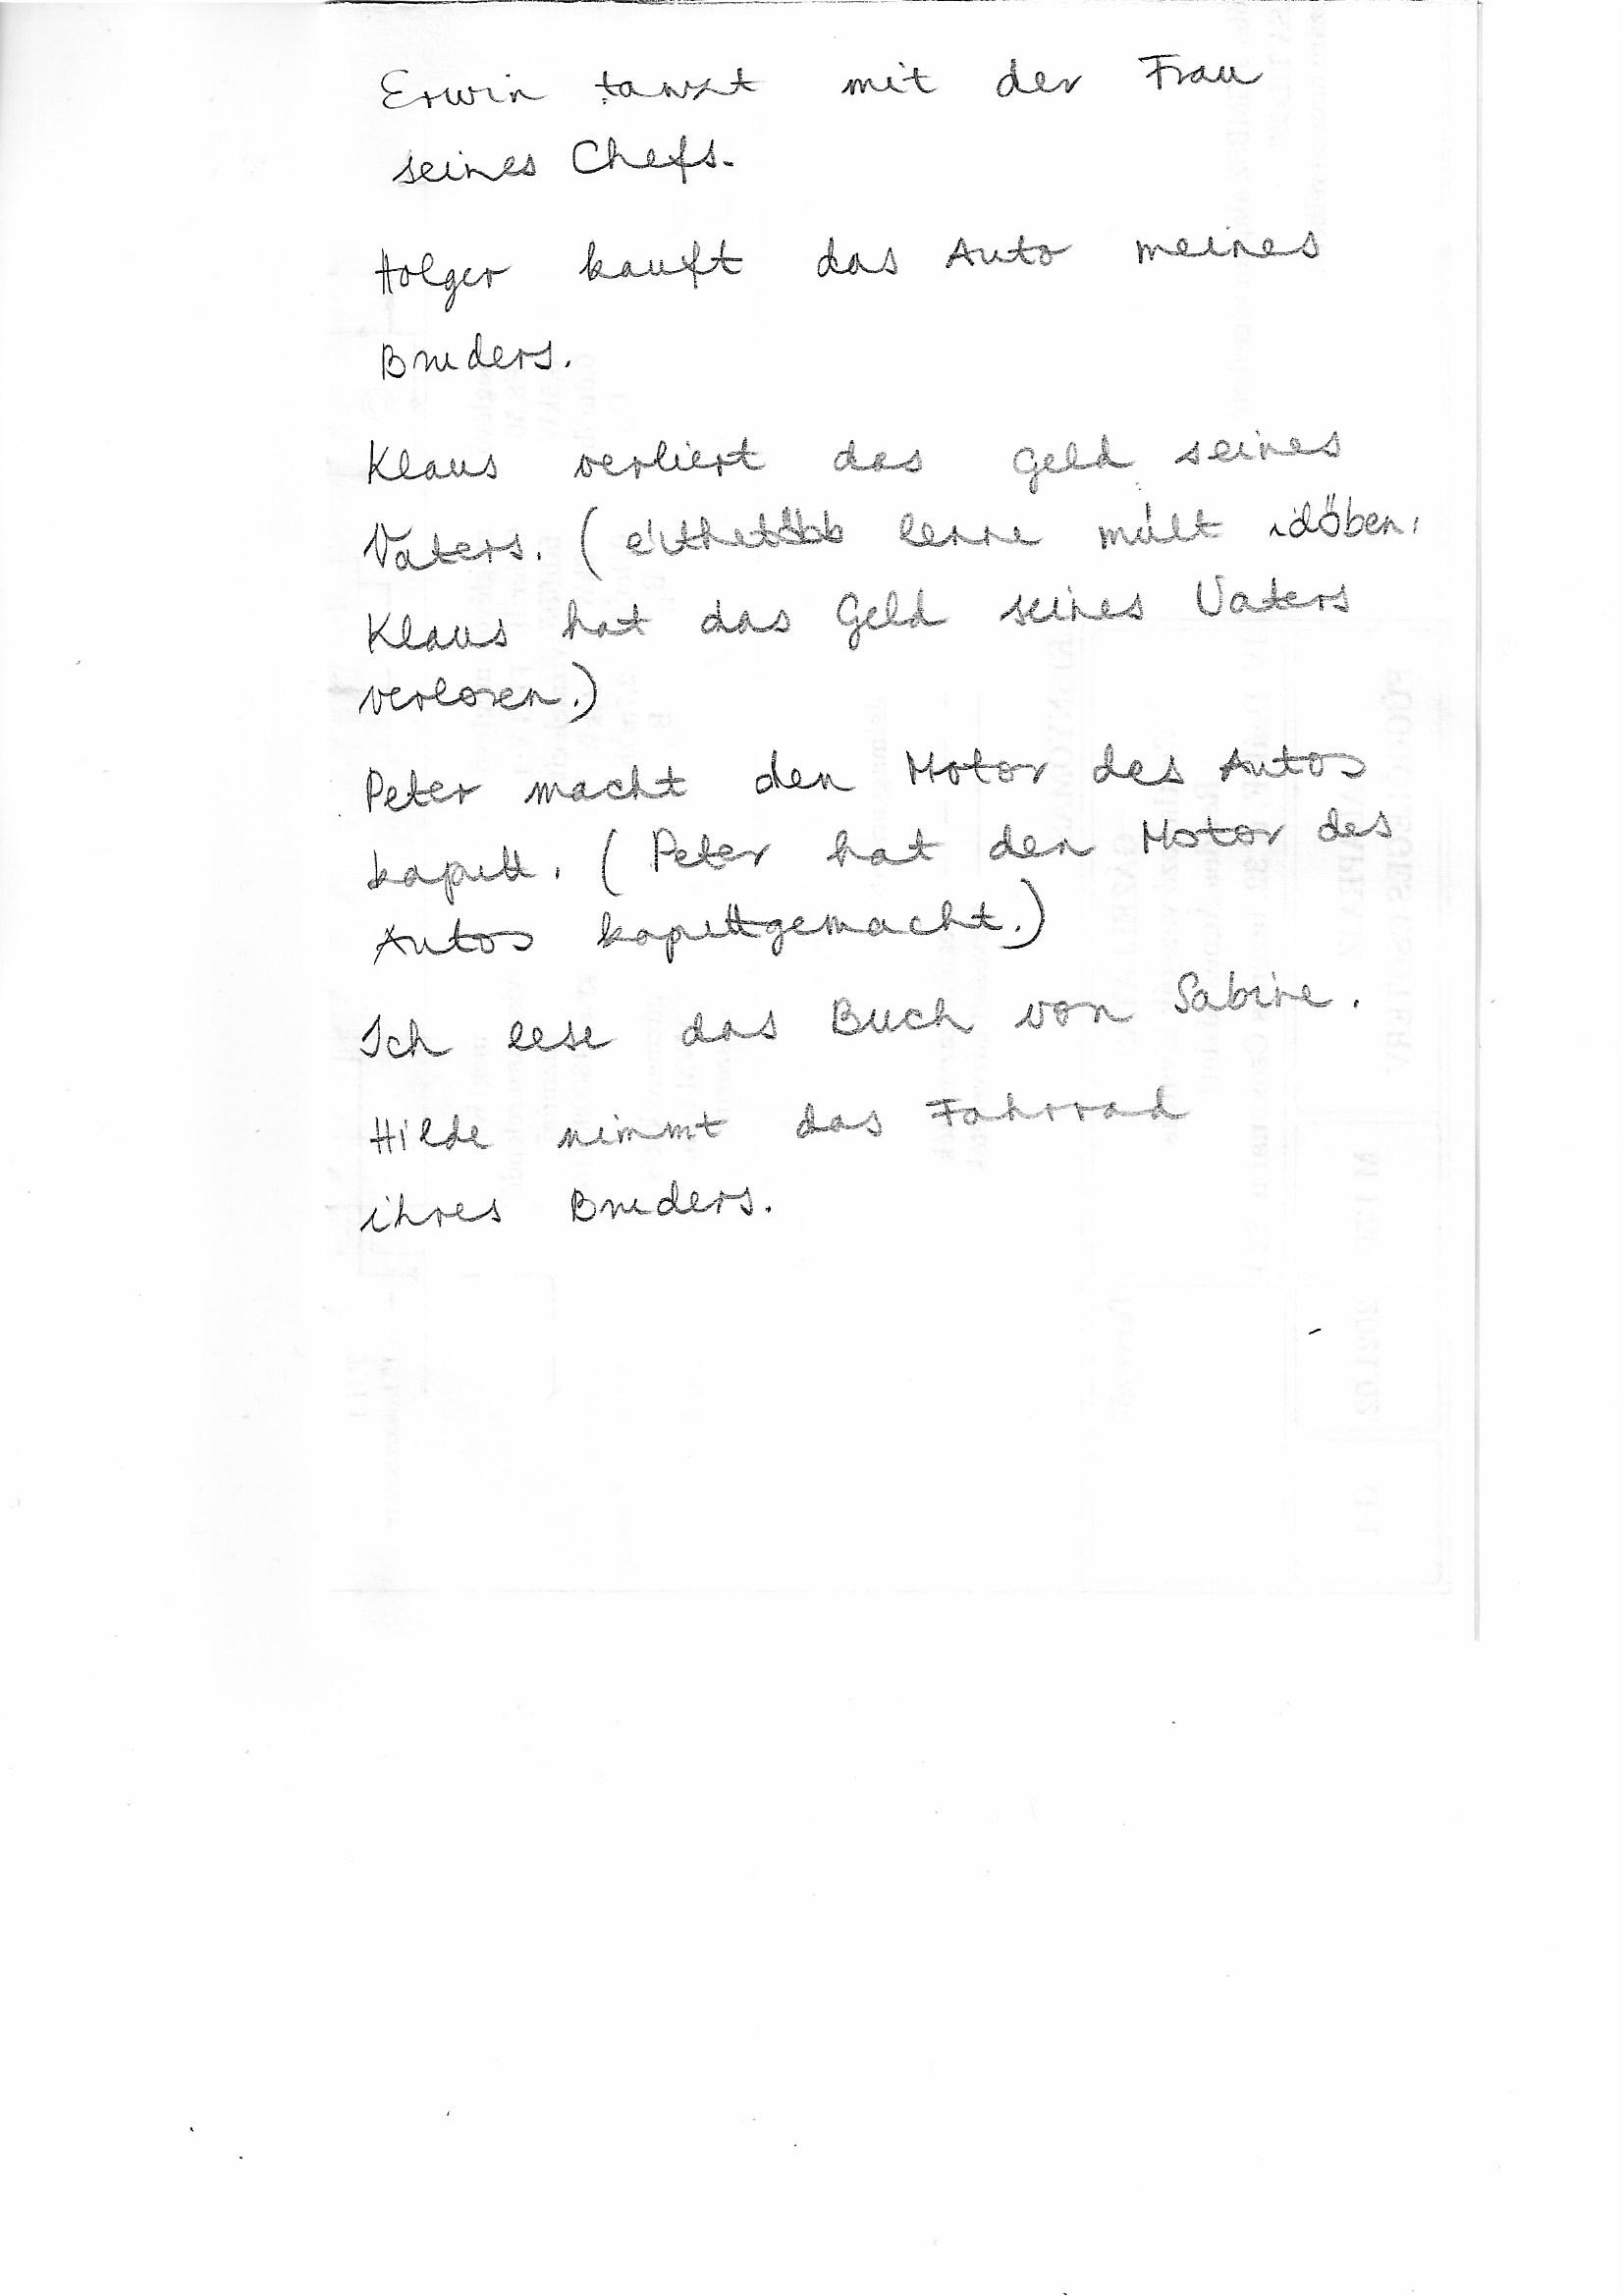 Erwin tanzt mit der Frau
seines Chefs.
Holger kauft das Auto meines
Bruders.
Klaus verliert das Geld seines
Vaters. (érthetőbb lenne múlt időben.
Klaus hat das Geld seines Vaters
verloren.)
Peter macht den Motor des Autos
kaputt. (Peter hat den Motor des
Autos kaputtgemacht.)
Ich lese das Buch von Sabine.
Hilde nimmt das Fahrrad
ihres Bruders.